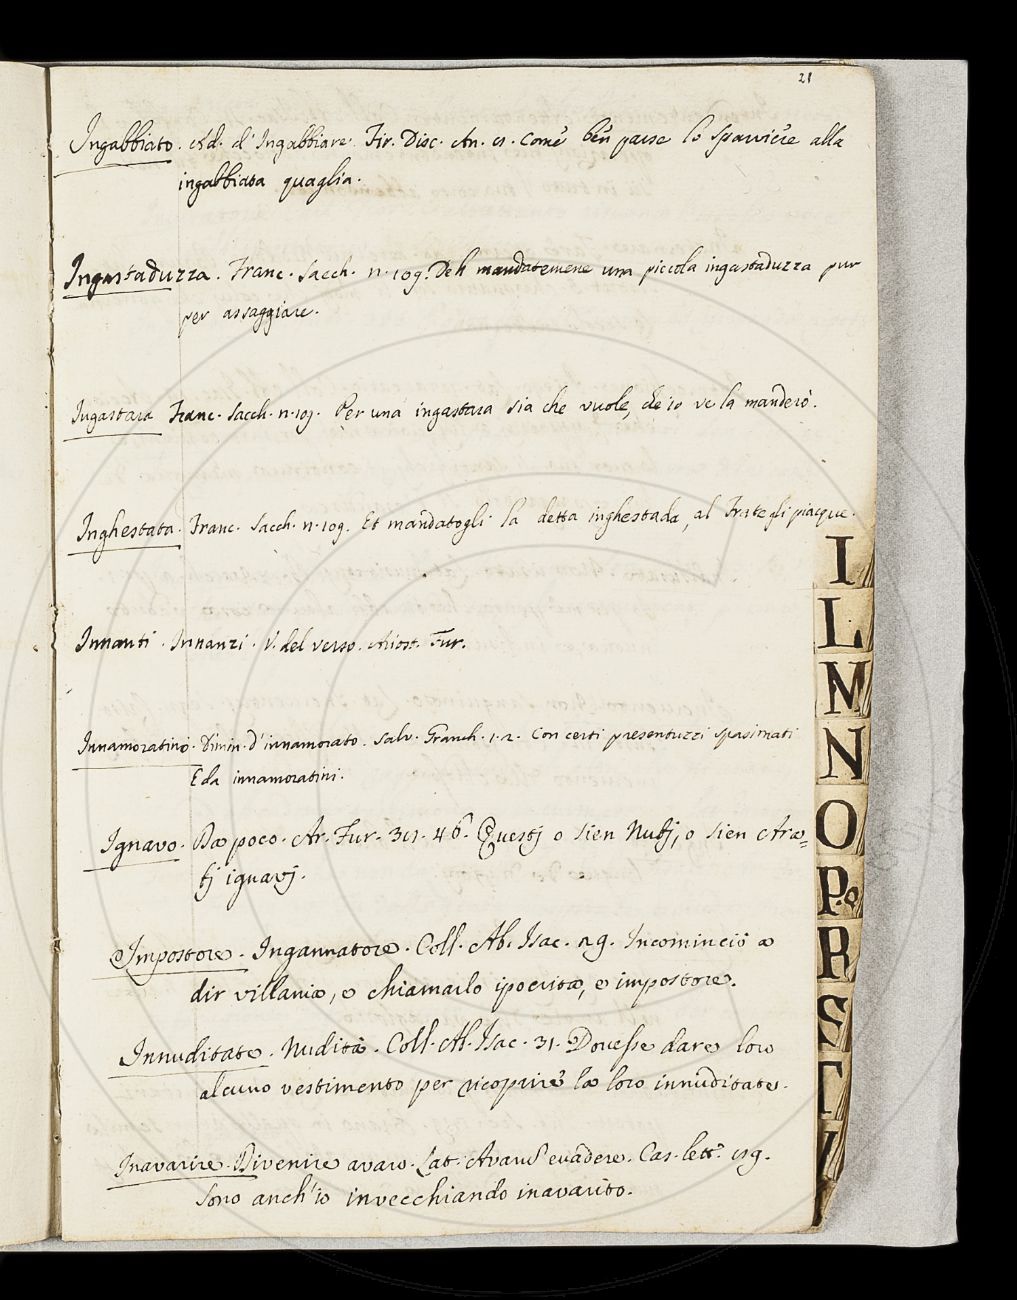 21
Ingabbiato. Ad. d'Ingabbiare. Fir. Disc. An. Come ben paese lo Sparviere alla
ingabbiata quaglia.
Ingastaduzza. Franc. Sacch. n. 109. Deh mandatemene una piccola ingastaduzza pur
per assaggiare.
Ingastara Franc. Sacch. n. 109. Per una ingastara sia che vuole, che io ve la manderò.
Inghestata. Franc. Sacch. n. 109. Et mandatogli la detta inghestada, al Frate gli piacque.
Innanti. Innanzi. V. del verso. Ariost. Fur.
Innamoratino. Dimin. d'innamorato. Salv. Granch. 1. 2. Con certi presentuzzi spasimati
E da innamoratini.
Ignavo. Da poco. Ar. Fur. 46. Questj o sien Nubj, o sien Ara=
bj ignavj.
Impostore. Ingannatore. Coll. Ab. Isac. 29. Incominciò a
dir villania, e chiamarlo ipocrita, e impostore.
Innuditate. Nudità. Coll. Ab. Isac. 31. Dovesse dare loro
alcuno vestimento per ricoprire la loro innuditate.
Inavarire. Divenire avaro. Lat. Avarus evadere. Cas. lett.
Sono anch'io invecchiando inavarito.
I
L
M
N
O
P.Q
R
S
T
V